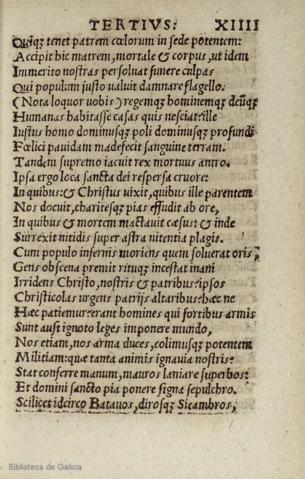 TERTIVS: XIIII
Quiq; tenet patrem cœlorum in sede potentem:
Accipit hic matrem, mortale & corpus, ut idem
Immerito nostras persoluat funere culpas
Qui populum iusto ualuit damnare flagello.
(Nota loquor uobis) regemq; hominemq; deūq;
Humanas habitasse casas quis nesciat: ille
Iustus homo dominusq; poli dominusq; profundi
Fœlici pauidam madefecit sanguine terram.
Tandem supremo iacuit rex mortuus antro.
Ipsa ergo loca sancta dei respersa cruore:
In quibus: & Christus uixit, quibus ille parentem
Nos docuit, charitesq; pias effudit ab ore,
In quibus & mortem mactauit cæsus: & inde
Surrexit nitidis super astra nitentia plagis.
Cum populo infernis moriens quem soluerat oris,
Gens obscena premit rituq; incestat inani
Irridens Christo, nostris & patribus: ipsos
Christicolas urgens patrijs altaribus: hæc ne
Hæc patiemur: erant homines qui fortibus armis
Sunt ausi ignoto leges imponere mundo,
Nos etiam, nos arma duces, colimusq; potentem
Militiam: quæ tanta animis ignauia nostris:
Stat conferre manum, mauros laniare superbos:
Et domini sancto pia ponere signa sepulchro.
Scilicet idcirco Batauos, dirosq; Sicambros,
Biblioteca de Galicia